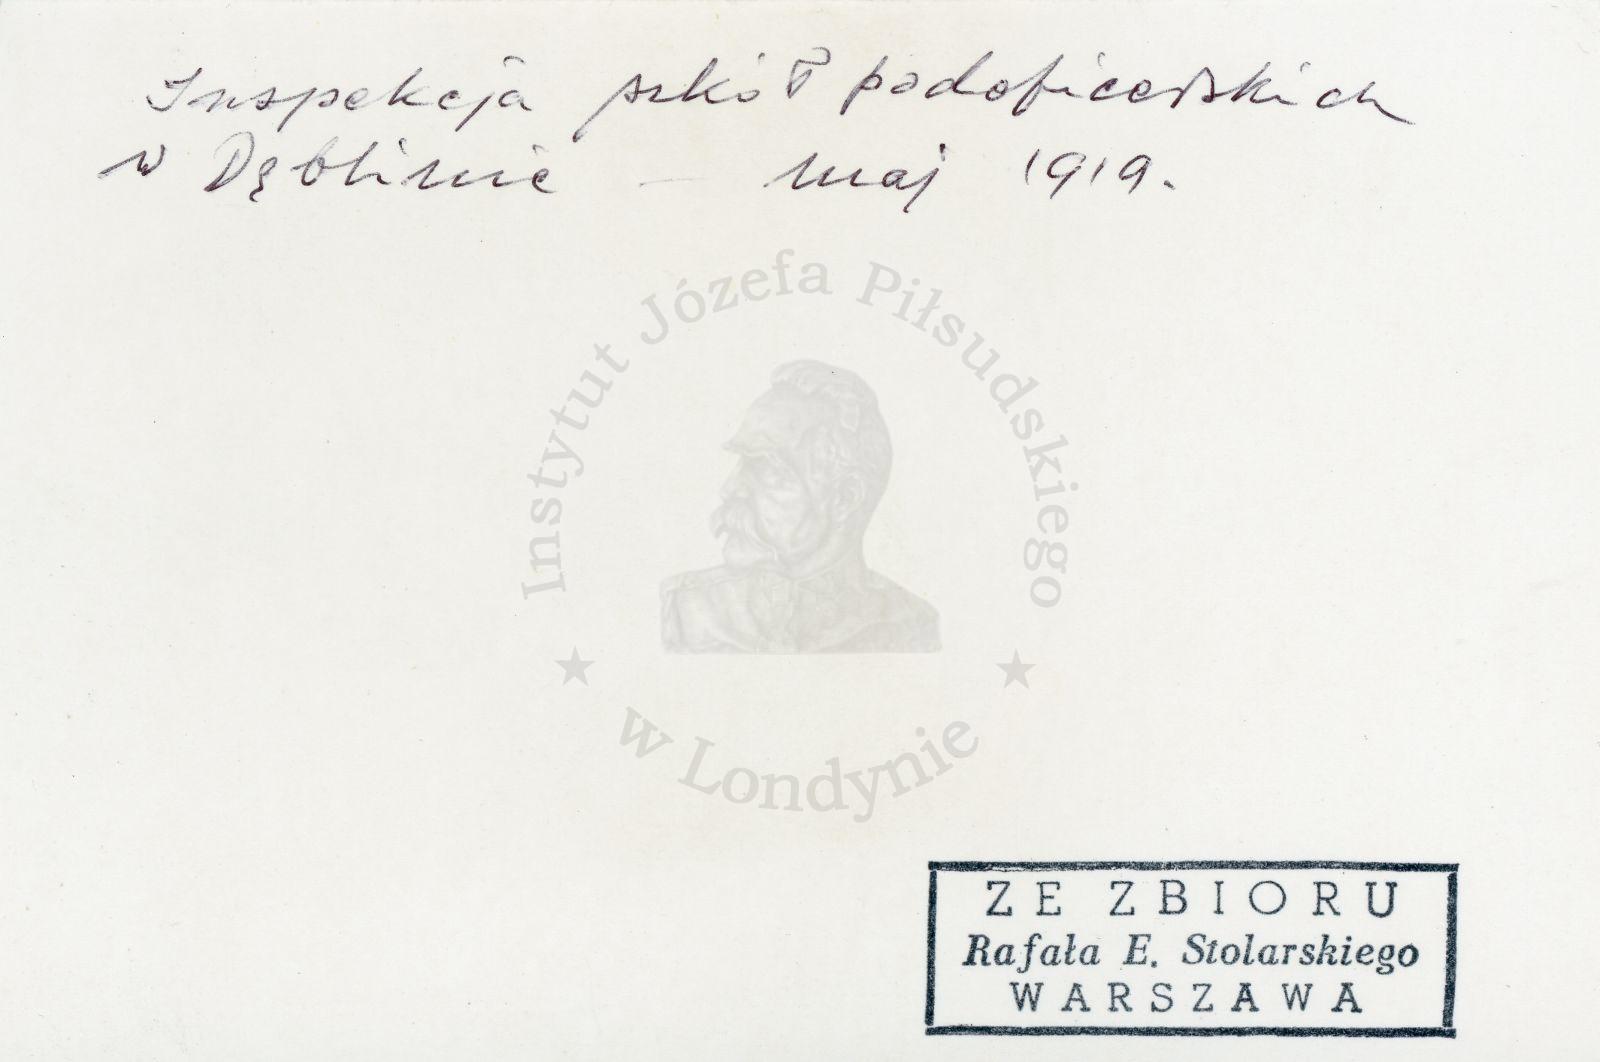 Inspekcja szkół podoficerskich
w Dęblinie — maj 1919.
Instytut Józefa Piłsudskiego
w Londynie
ZE ZBIORU
Rafała E. Stolarskiego
WARSZAWA